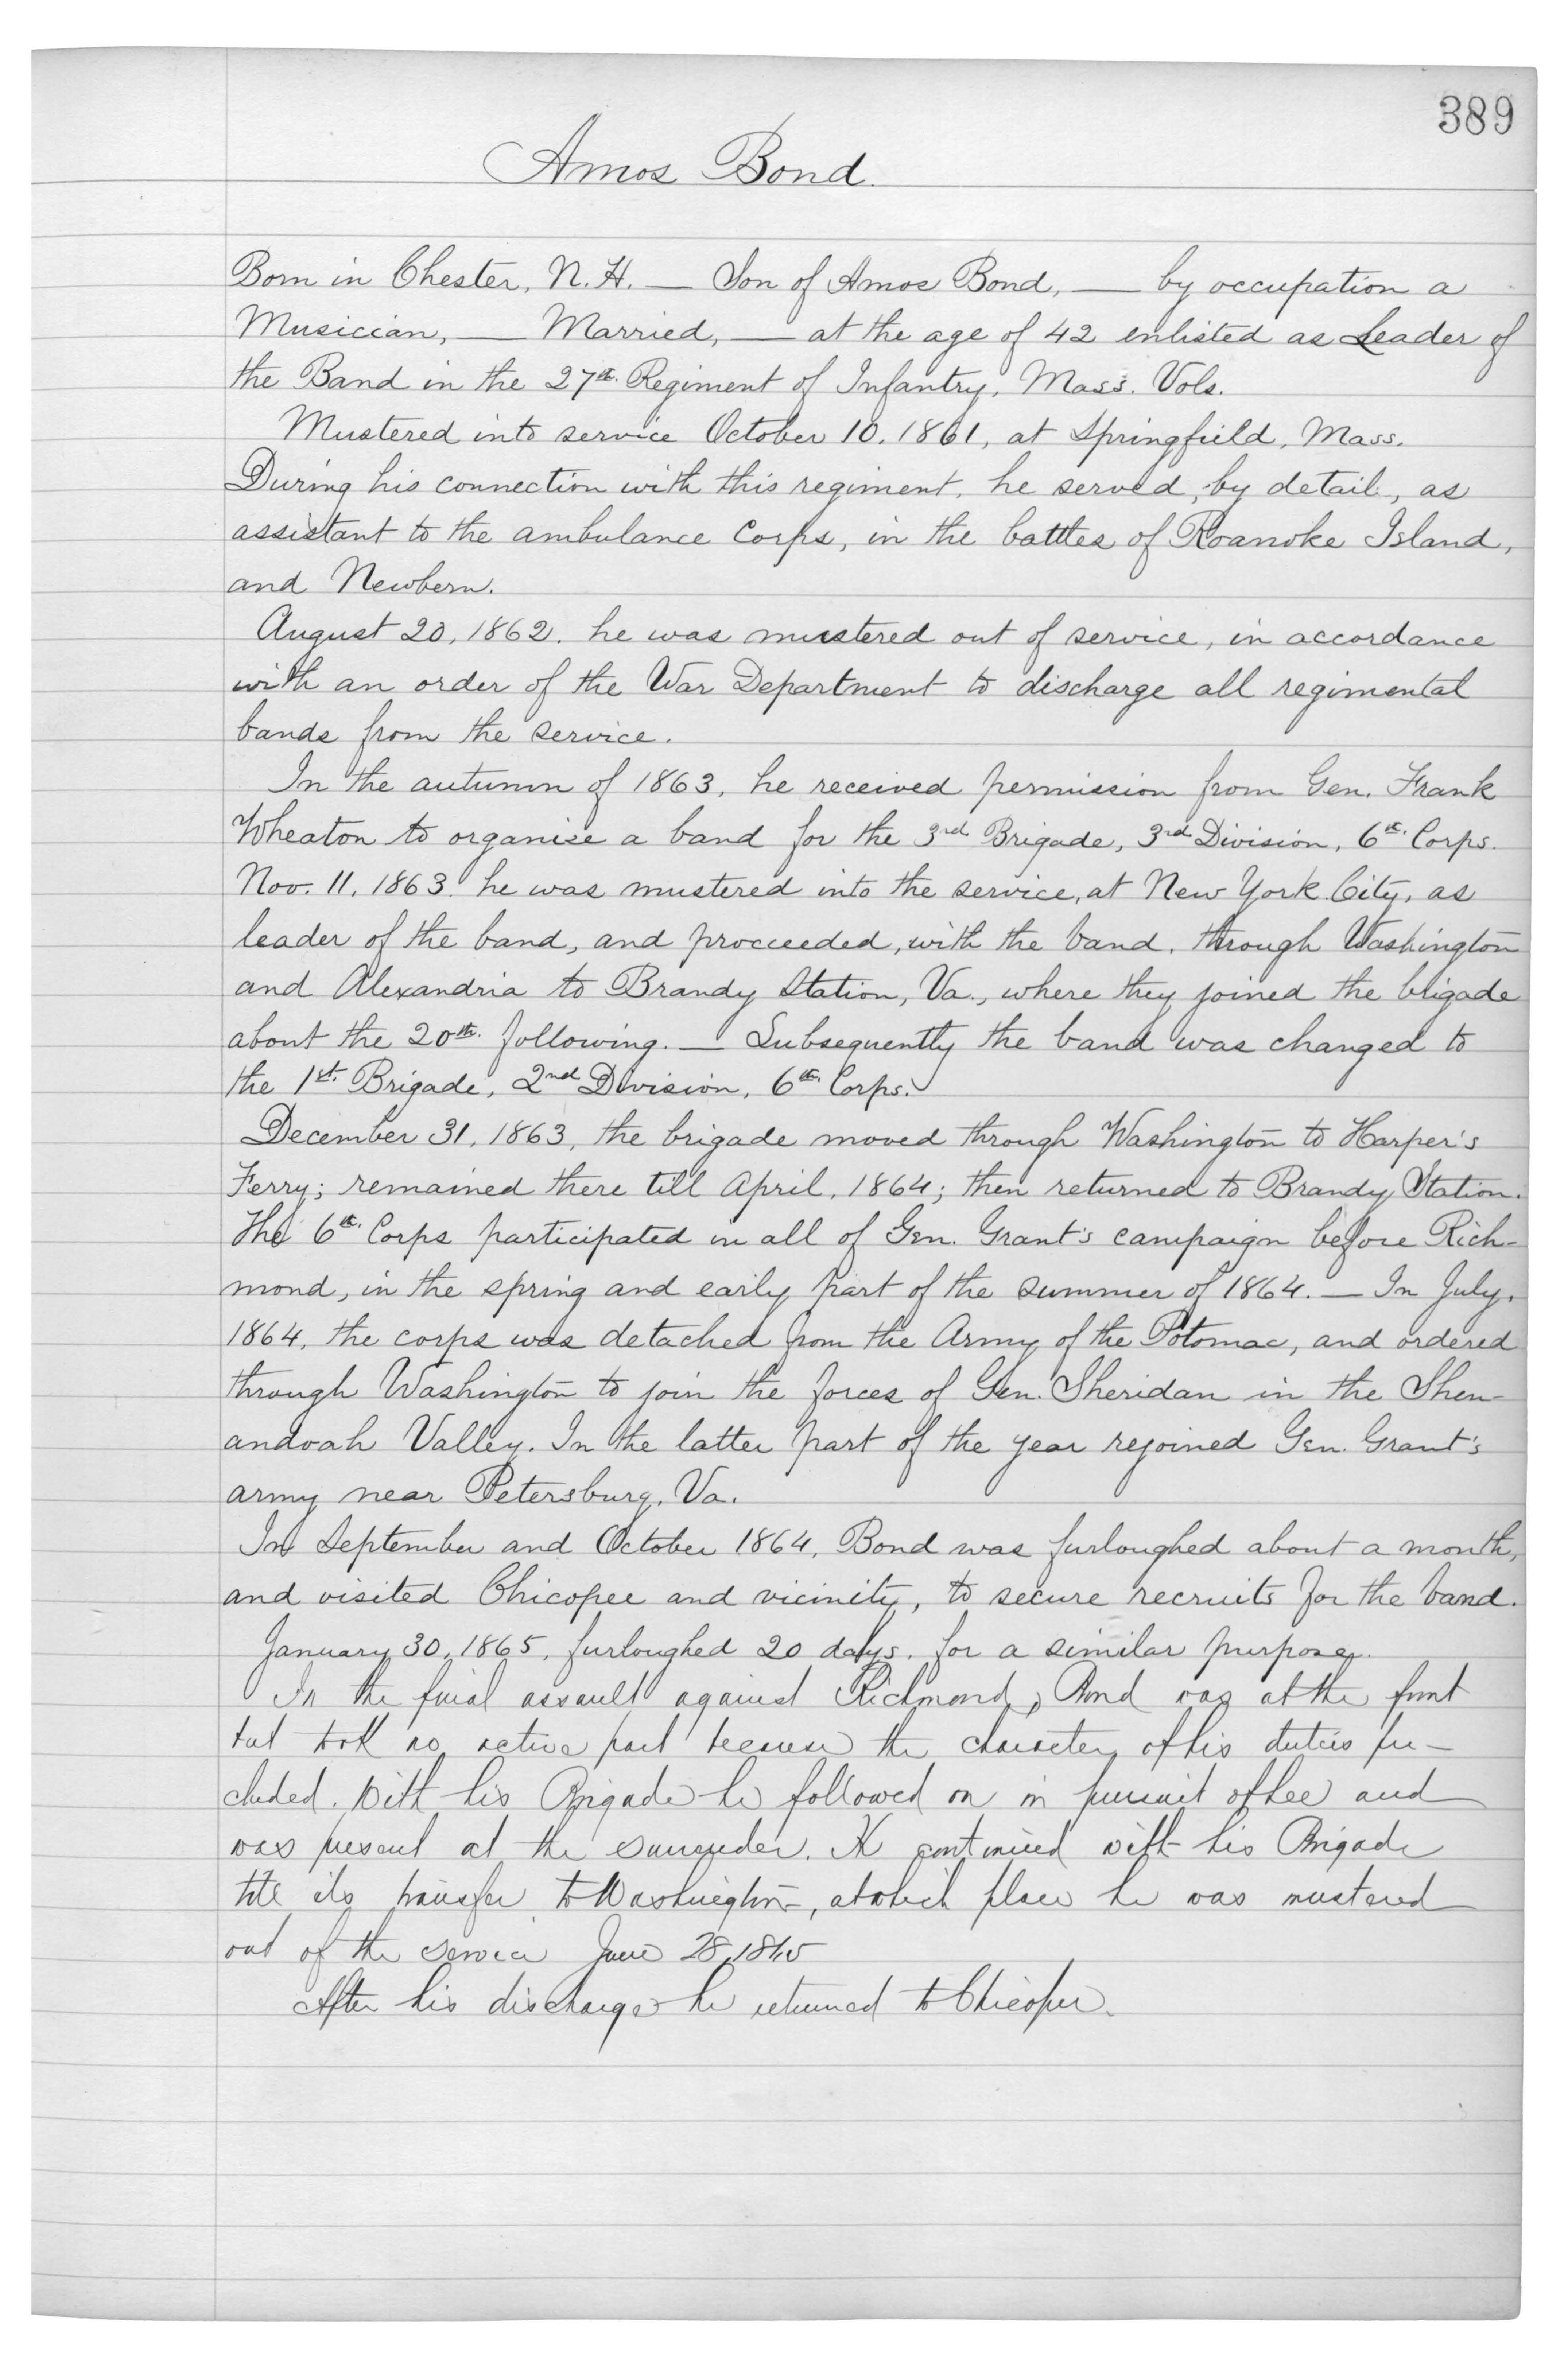 389
Amos Bond.
Born in Chester, N.H. — Son of Amos Bond, — by occupation a
Musician, — Married, — at the age of 42 enlisted as Leader of
the Band in the 27th. Regiment of Infantry, Mass. Vols.
Mustered into service October 10, 1861, at Springfield, Mass.
During his connection with this regiment, he served, by detail, as
assistant to the ambulance Corps, in the battles of Roanoke Island,
and Newbern.
August 20, 1862. he was mustered out of service, in accordance
with an order of the War Department to discharge all regimental
bands from the service.
In the autumn of 1863, he received permission from Gen. Frank
Wheaton to organise a band for the 3rd. Brigade, 3rd. Division, 6th. Corps.
Nov. 11, 1863. he was mustered into the service, at New York City, as
leader of the band, and procceeded, with the band, through Washington
and Alexandria to Brandy Station, Va., where they joined the brigade
about the 20th. following. — Subsequently the band was changed to
the 1st. Brigade, 2nd. Division, 6th. Corps.
December 31, 1863, the brigade moved through Washington to Harper's
Ferry; remained there till April, 1864; then returned to Brandy Station.
The 6th. Corps participated in all of Gen. Grant's campaign before Rich-
mond, in the spring and early part of the summer of 1864. — In July,
1864, the corps was detached from the Army of the Potomac, and ordered
through Washington to join the forces of Gen. Sheridan in the Shen-
andoah Valley. In the latter part of the year rejoined Gen. Grant's
army near Petersburg, Va.
In September and October 1864, Bond was furloughed about a month,
and visited Chicopee and vicinity, to secure recruits for the band.
January 30, 1865, furloughed 20 days, for a similar purpose.
In the final assault against Richmond, Bond was at the front
but took no active part because the character of his duties pre-
cluded. With his Brigade he followed on in pursuit of Lee and
was present at the surrender. He continued with his Brigade
till its transfer to Washington, at which place he was mustered
out of the service June 28, 1865
After his discharge he returned to Chicopee.